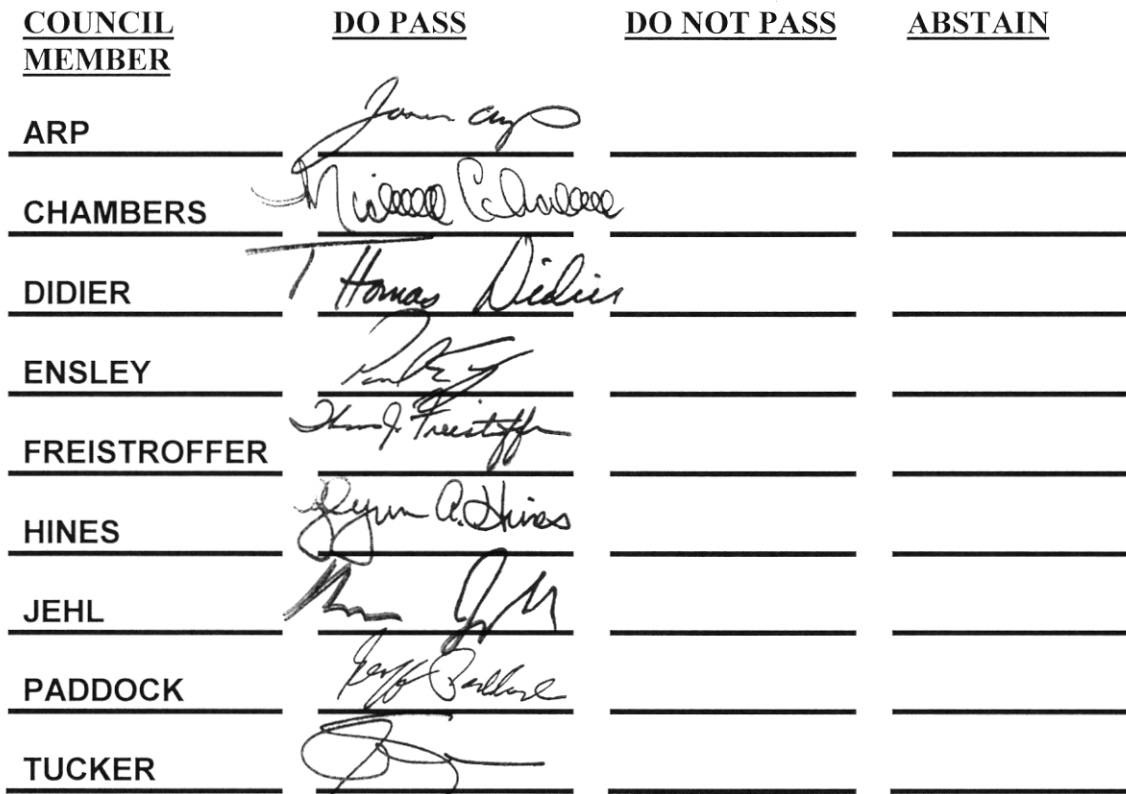 COUNCIL MEMBER DO PASS DO NOT PASS ABSTAIN
ARP Jason Arp
CHAMBERS Michelle Chambers
DIDIER Thomas Didier
ENSLEY Paul
FREISTROFFER Thomas J. Freistroffer
HINES Glynn A. Hines
JEHL
PADDOCK Geoff Paddock
TUCKER